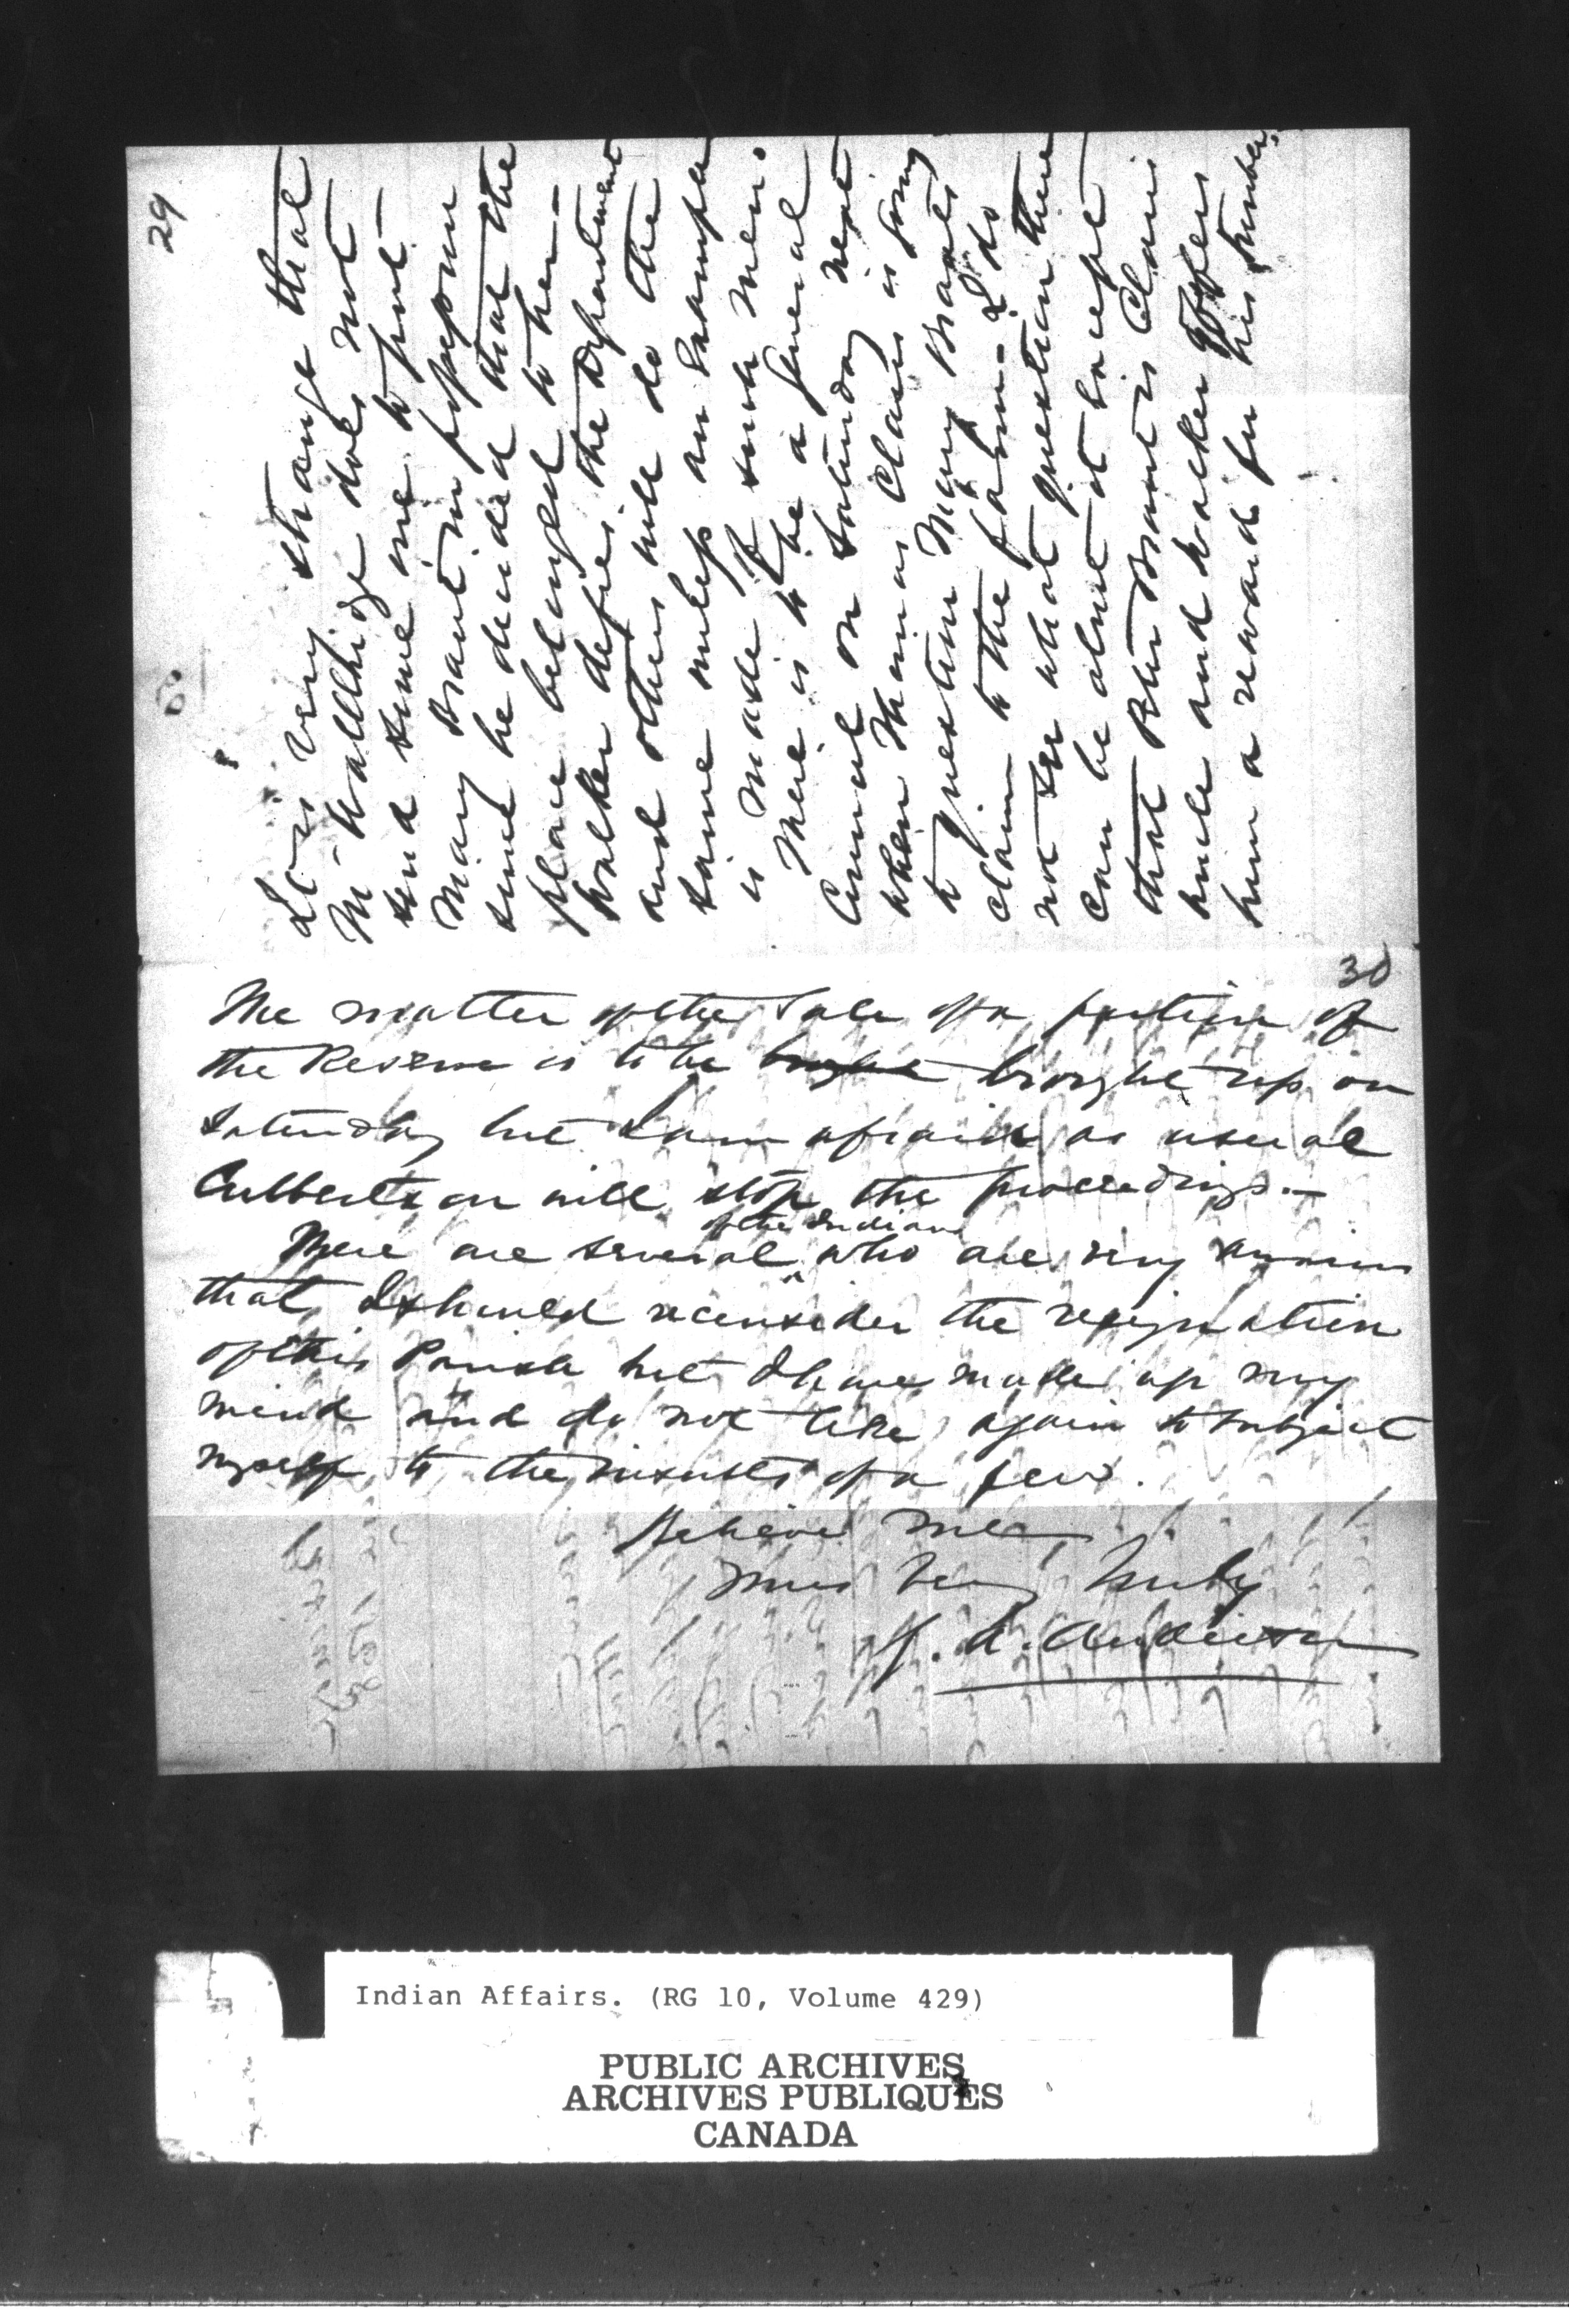 29
It is very strange that
Mr Wallbridge does not
send some one to put
Mary Brant in possession
since he decided that the
place belonged to her -
Walker defies the Department
and others will do the
same unless an Example
is made of such men.
There is to be a general
Council on Saturday next
when Thomas Claus is going
to question Mary Brant's
claim to the farm - I do
not see what question there
can be about it except
that Peter Brant is Claus'
uncle and Walker offers
him a reward for his
30
The matter of the Sale of a portion of
the Reserve is to be brought brought up on
Saturday but I am afraid as usual
Culbertson will stop the proceedings. -
There are several of the Indians who are very anxious
that I should reconsider the resignation
of this Parish but I have made up my
mind and do not like again to subject
myself to the insults of a few.
Believe me,
Yours very truly
G. A. Anderson
Indian Affairs. (RG 10, Volume 429)
PUBLIC ARCHIVES
ARCHIVES PUBLIQUES
CANADA